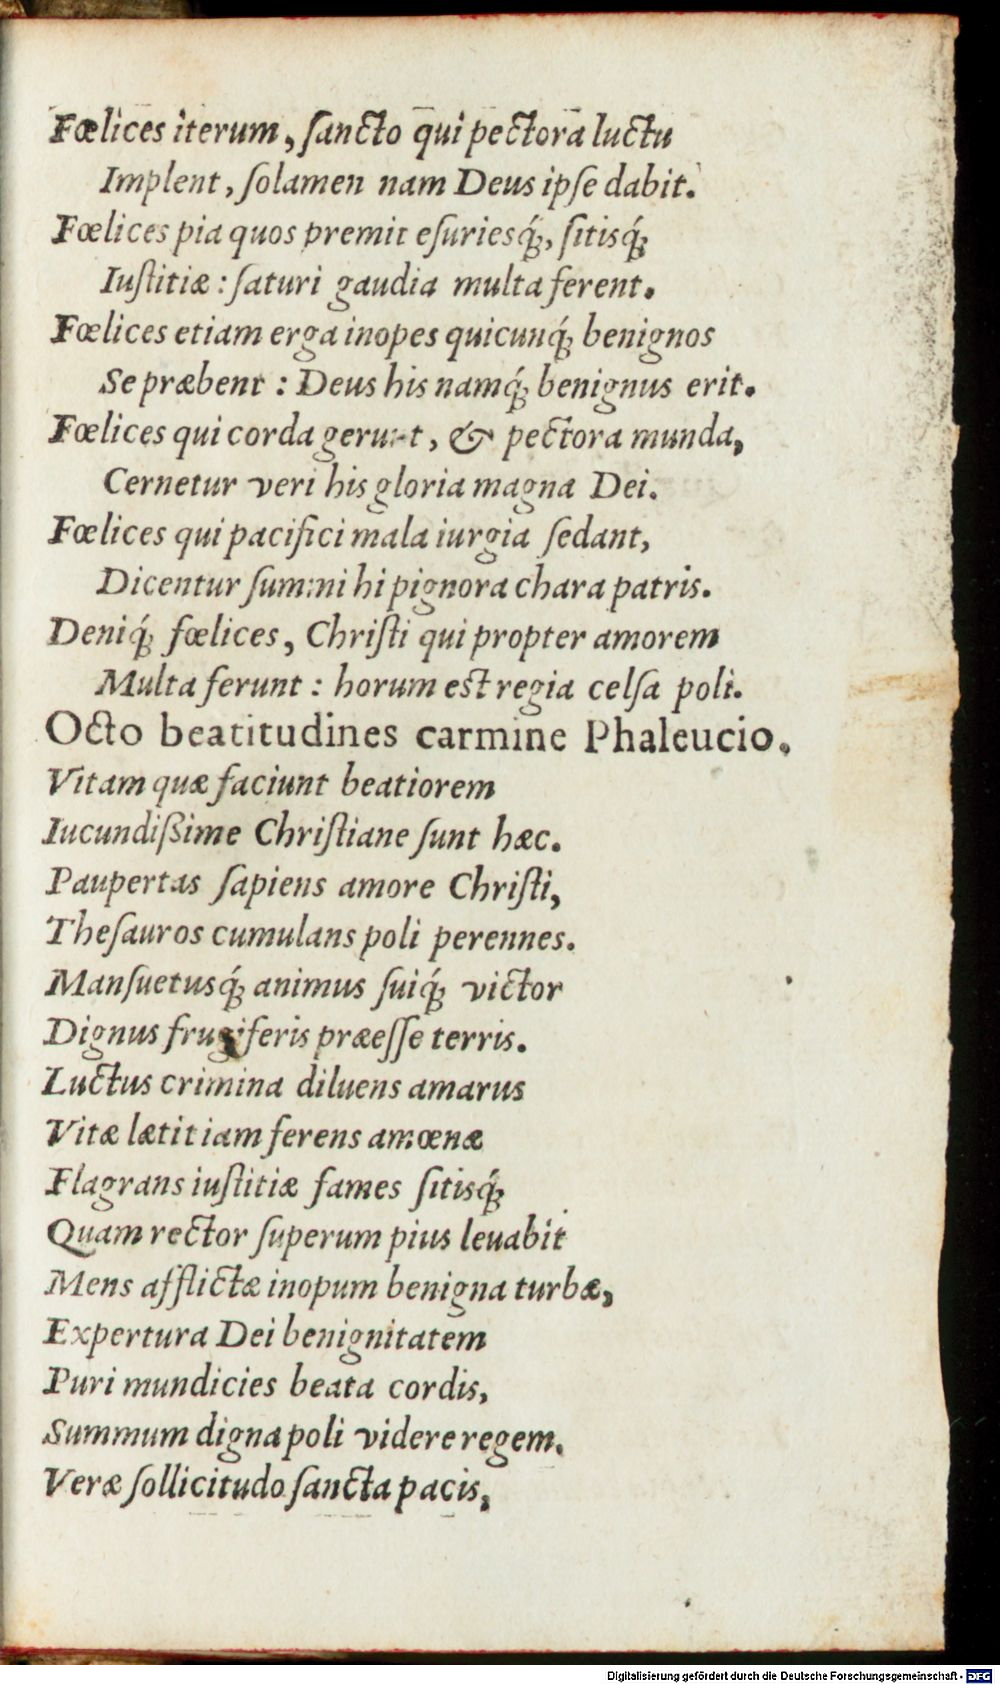 Fœlices iterum, ſancto qui pectora luctu
Implent, ſolamen nam Deus ipſe dabit.
Fœlices pia quos premit eſuriesq́;, ſitisq́;
Iuſtitiæ : ſaturi gaudia multa ferent.
Fœlices etiam erga inopes quicunq́; benignos
Se præbent : Deus his namq́; benignus erit.
Fœlices qui corda gerunt, & pectora munda,
Cernetur veri his gloria magna Dei.
Fœlices qui pacifici mala iurgia ſedant,
Dicentur ſummi hi pignora chara patris.
Deniq́; fœlices, Chriſti qui propter amorem
Multa ferunt : horum eſt regia celſa poli.
Octo beatitudines carmine Phaleucio.
Vitam quæ faciunt beatiorem
Iucundißime Chriſtiane ſunt hæc.
Paupertas ſapiens amore Chriſti,
Theſauros cumulans poli perennes.
Manſuetusq́; animus ſuiq́; victor
Dignus frugiferis præeſſe terris.
Luctus crimina diluens amarus
Vitæ lætitiam ferens amœnæ
Flagrans iuſtitiæ fames ſitisq́;
Quam rector ſuperum pius leuabit
Mens afflictæ inopum benigna turbæ,
Expertura Dei benignitatem
Puri mundicies beata cordis,
Summum digna poli videre regem.
Veræ ſollicitudo ſancta pacis,
Digitalisierung gefördert durch die Deutsche Forschungsgemeinschaft - DFG